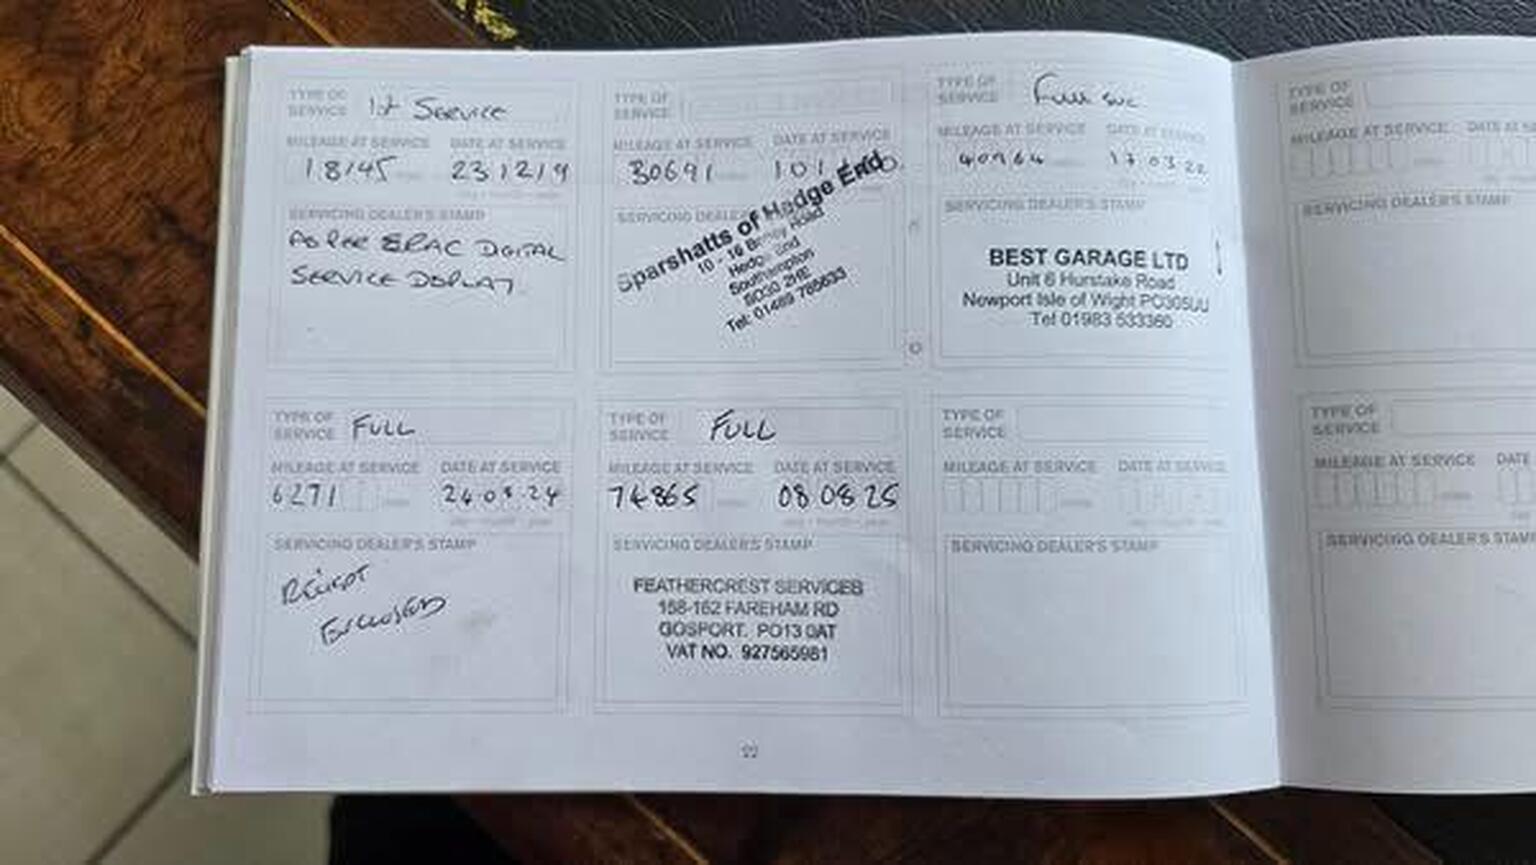 TYPE OF SERVICE 1st Service
MILEAGE AT SERVICE DATE AT SERVICE
18145 23 12 19
SERVICING DEALER'S STAMP
AS PER ERAC DIGITAL
SERVICE DISPLAY
TYPE OF SERVICE
MILEAGE AT SERVICE DATE AT SERVICE
30691
SERVICING DEALER'S
Sparshatts of Hedge End
10 - 16 Road
Hedge End
Southampton
SO30 2HE
Tel: 01489 785633
TYPE OF SERVICE Full SVC
MILEAGE AT SERVICE DATE AT SERVICE
40964 17 03 22
SERVICING DEALER'S STAMP
BEST GARAGE LTD
Unit 6 Hurstake Road
Newport Isle of Wight PO305UU
Tel 01983 533360
TYPE OF SERVICE FULL
MILEAGE AT SERVICE DATE AT SERVICE
6271 24 08 24
SERVICING DEALER'S STAMP
RECEIPT
ENCLOSED
TYPE OF SERVICE FULL
MILEAGE AT SERVICE DATE AT SERVICE
74865 08 08 25
SERVICING DEALER'S STAMP
FEATHERCREST SERVICES
158-162 FAREHAM RD
GOSPORT. PO13 0AT
VAT NO. 927565981
TYPE OF SERVICE
MILEAGE AT SERVICE DATE AT SERVICE
SERVICING DEALER'S STAMP
22
TYPE OF SERVICE
MILEAGE AT SERVICE DATE AT
SERVICING DEALER'S STAMP
TYPE OF SERVICE
MILEAGE AT SERVICE DATE
SERVICING DEALER'S STAMP